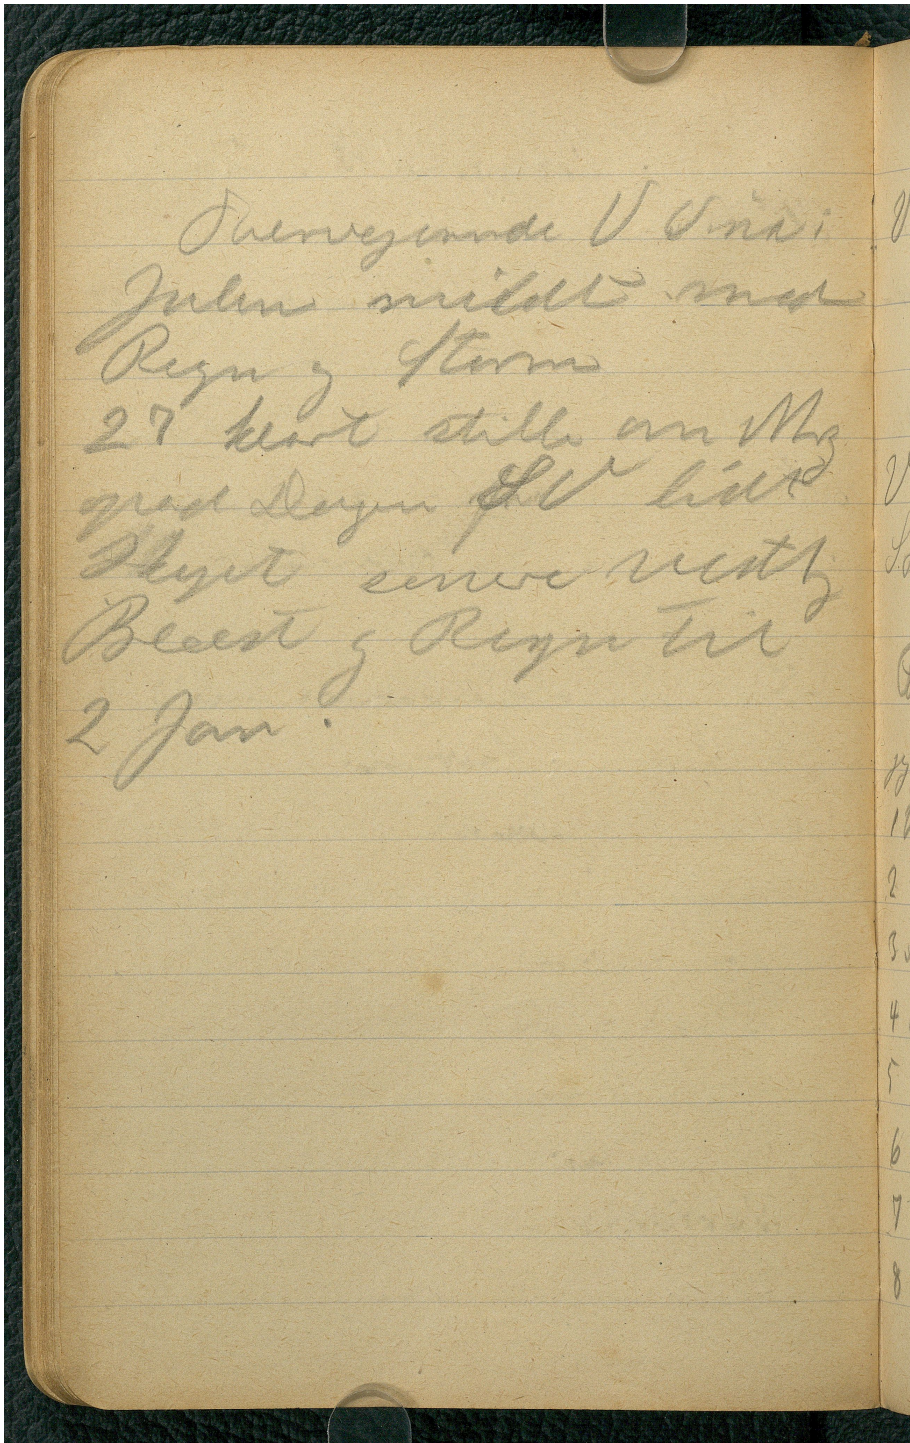 Overvejende V Vind i
Julen mildt med
Regn og Storm
27 klart stille om Mrg
graa Dagen SV lidt
Skyet senere vestlig
Blæst og Regn til
2 Jan.
V
V
2
3
4
5
6
7
8